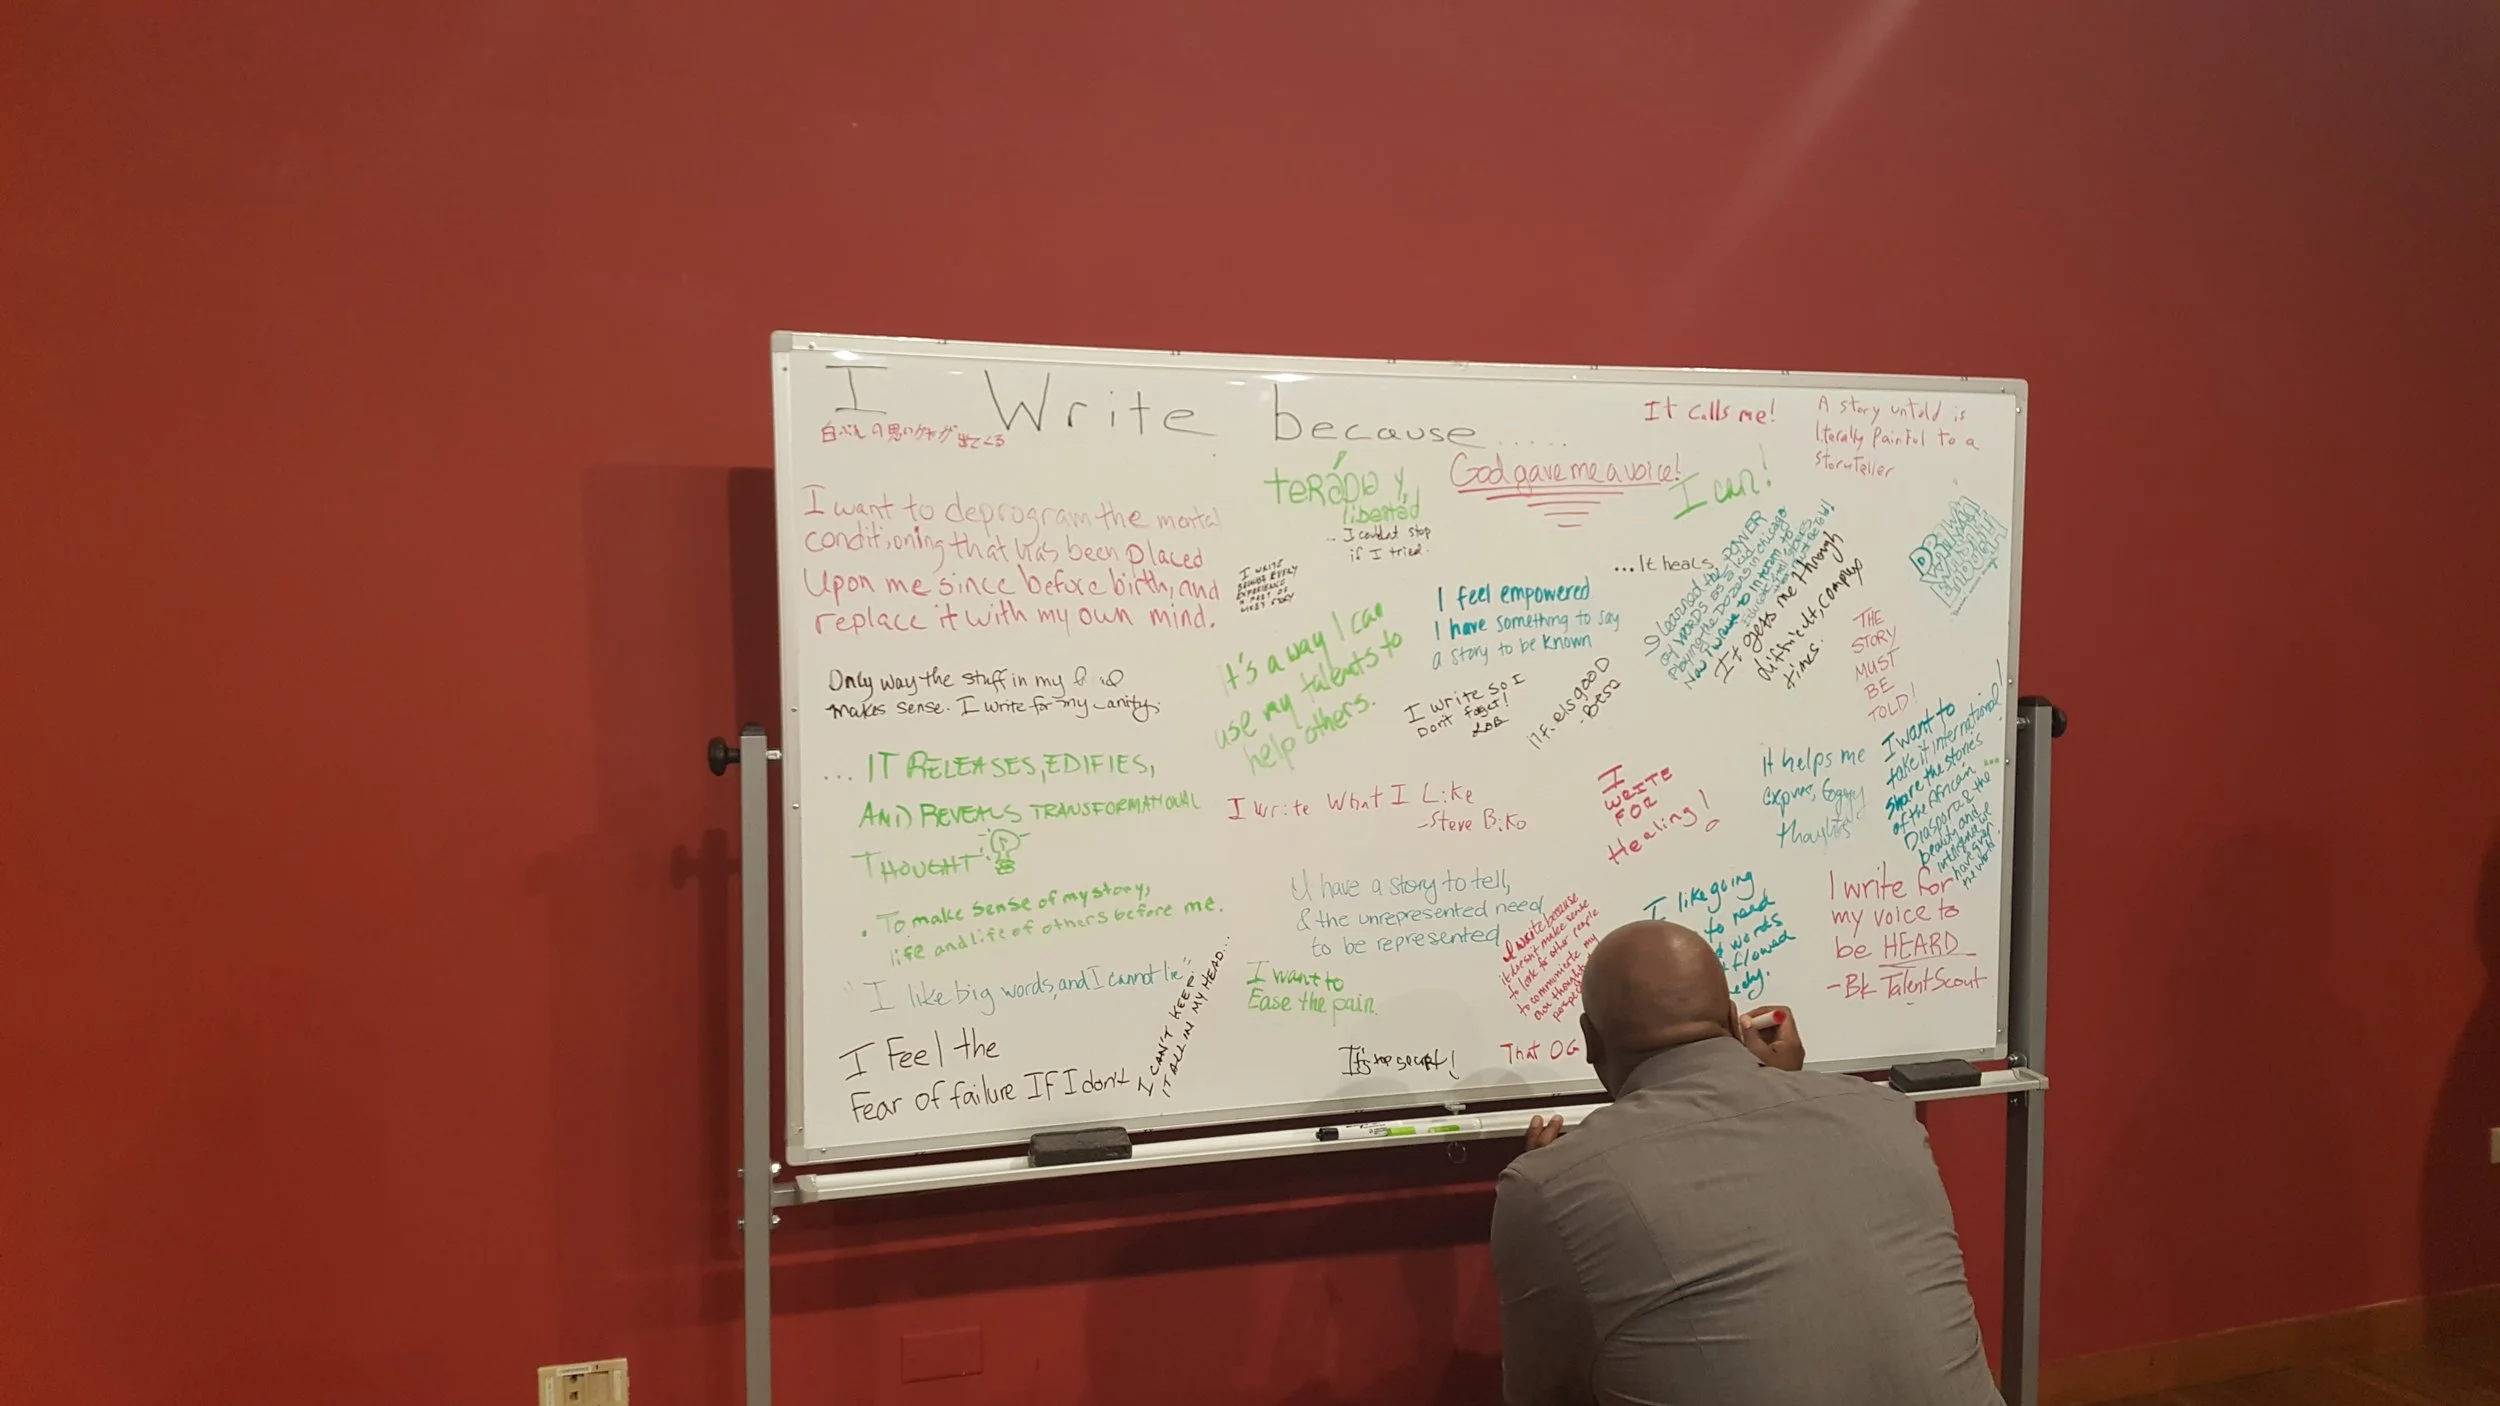 I Write because.....
It calls me!
A story untold is
literally painful to a
storyteller
God gave me a voice!
I can!
terápia y
libertad
... I couldnt stop
if I tried.
I want to deprogram the mental
conditioning that has been placed
Upon me since before birth, and
replace it with my own mind.
I WRITE
EVERY
EXPERIENCE
A PART OF
STORY
...It heals
I learned the POWER
of WORDS as a kid
playing the Dozens in Chicago
Now I write to inform, to
It gets me through
difficult, complex
times.
I feel empowered
I have something to say
a story to be known
It's a way I can
use my talents to
help others.
THE
STORY
MUST
BE
TOLD!
Only way the stuff in my
makes sense. I write for my sanity.
I write so I
Don't forget!
It feels good
I want to
take it international!
share the stories
of the African
Diaspora & the
beauty and
intelligence we
have given
the world
... IT RELEASES, EDIFIES,
AND REVEALS TRANSFORMATIONAL
THOUGHT
I write What I Like
-Steve Biko
I
WRITE
FOR
Healing!
it helps me
express foggy
thoughts
• To make sense of my story,
life and life of others before me.
I have a story to tell,
& the unrepresented need
to be represented
I write because
it doesn't make sense
to look for other people
to communicate my
own thoughts
I like going
to read
words
flowed
I write for
my voice to
be HEARD
- BK TalentScout
"I like big words, and I cannot lie"
I CAN'T KEEP
IT ALL IN MY HEAD...
I want to
Ease the pain.
I Feel the
Fear of failure IF I don't
It's top secret!
That OG